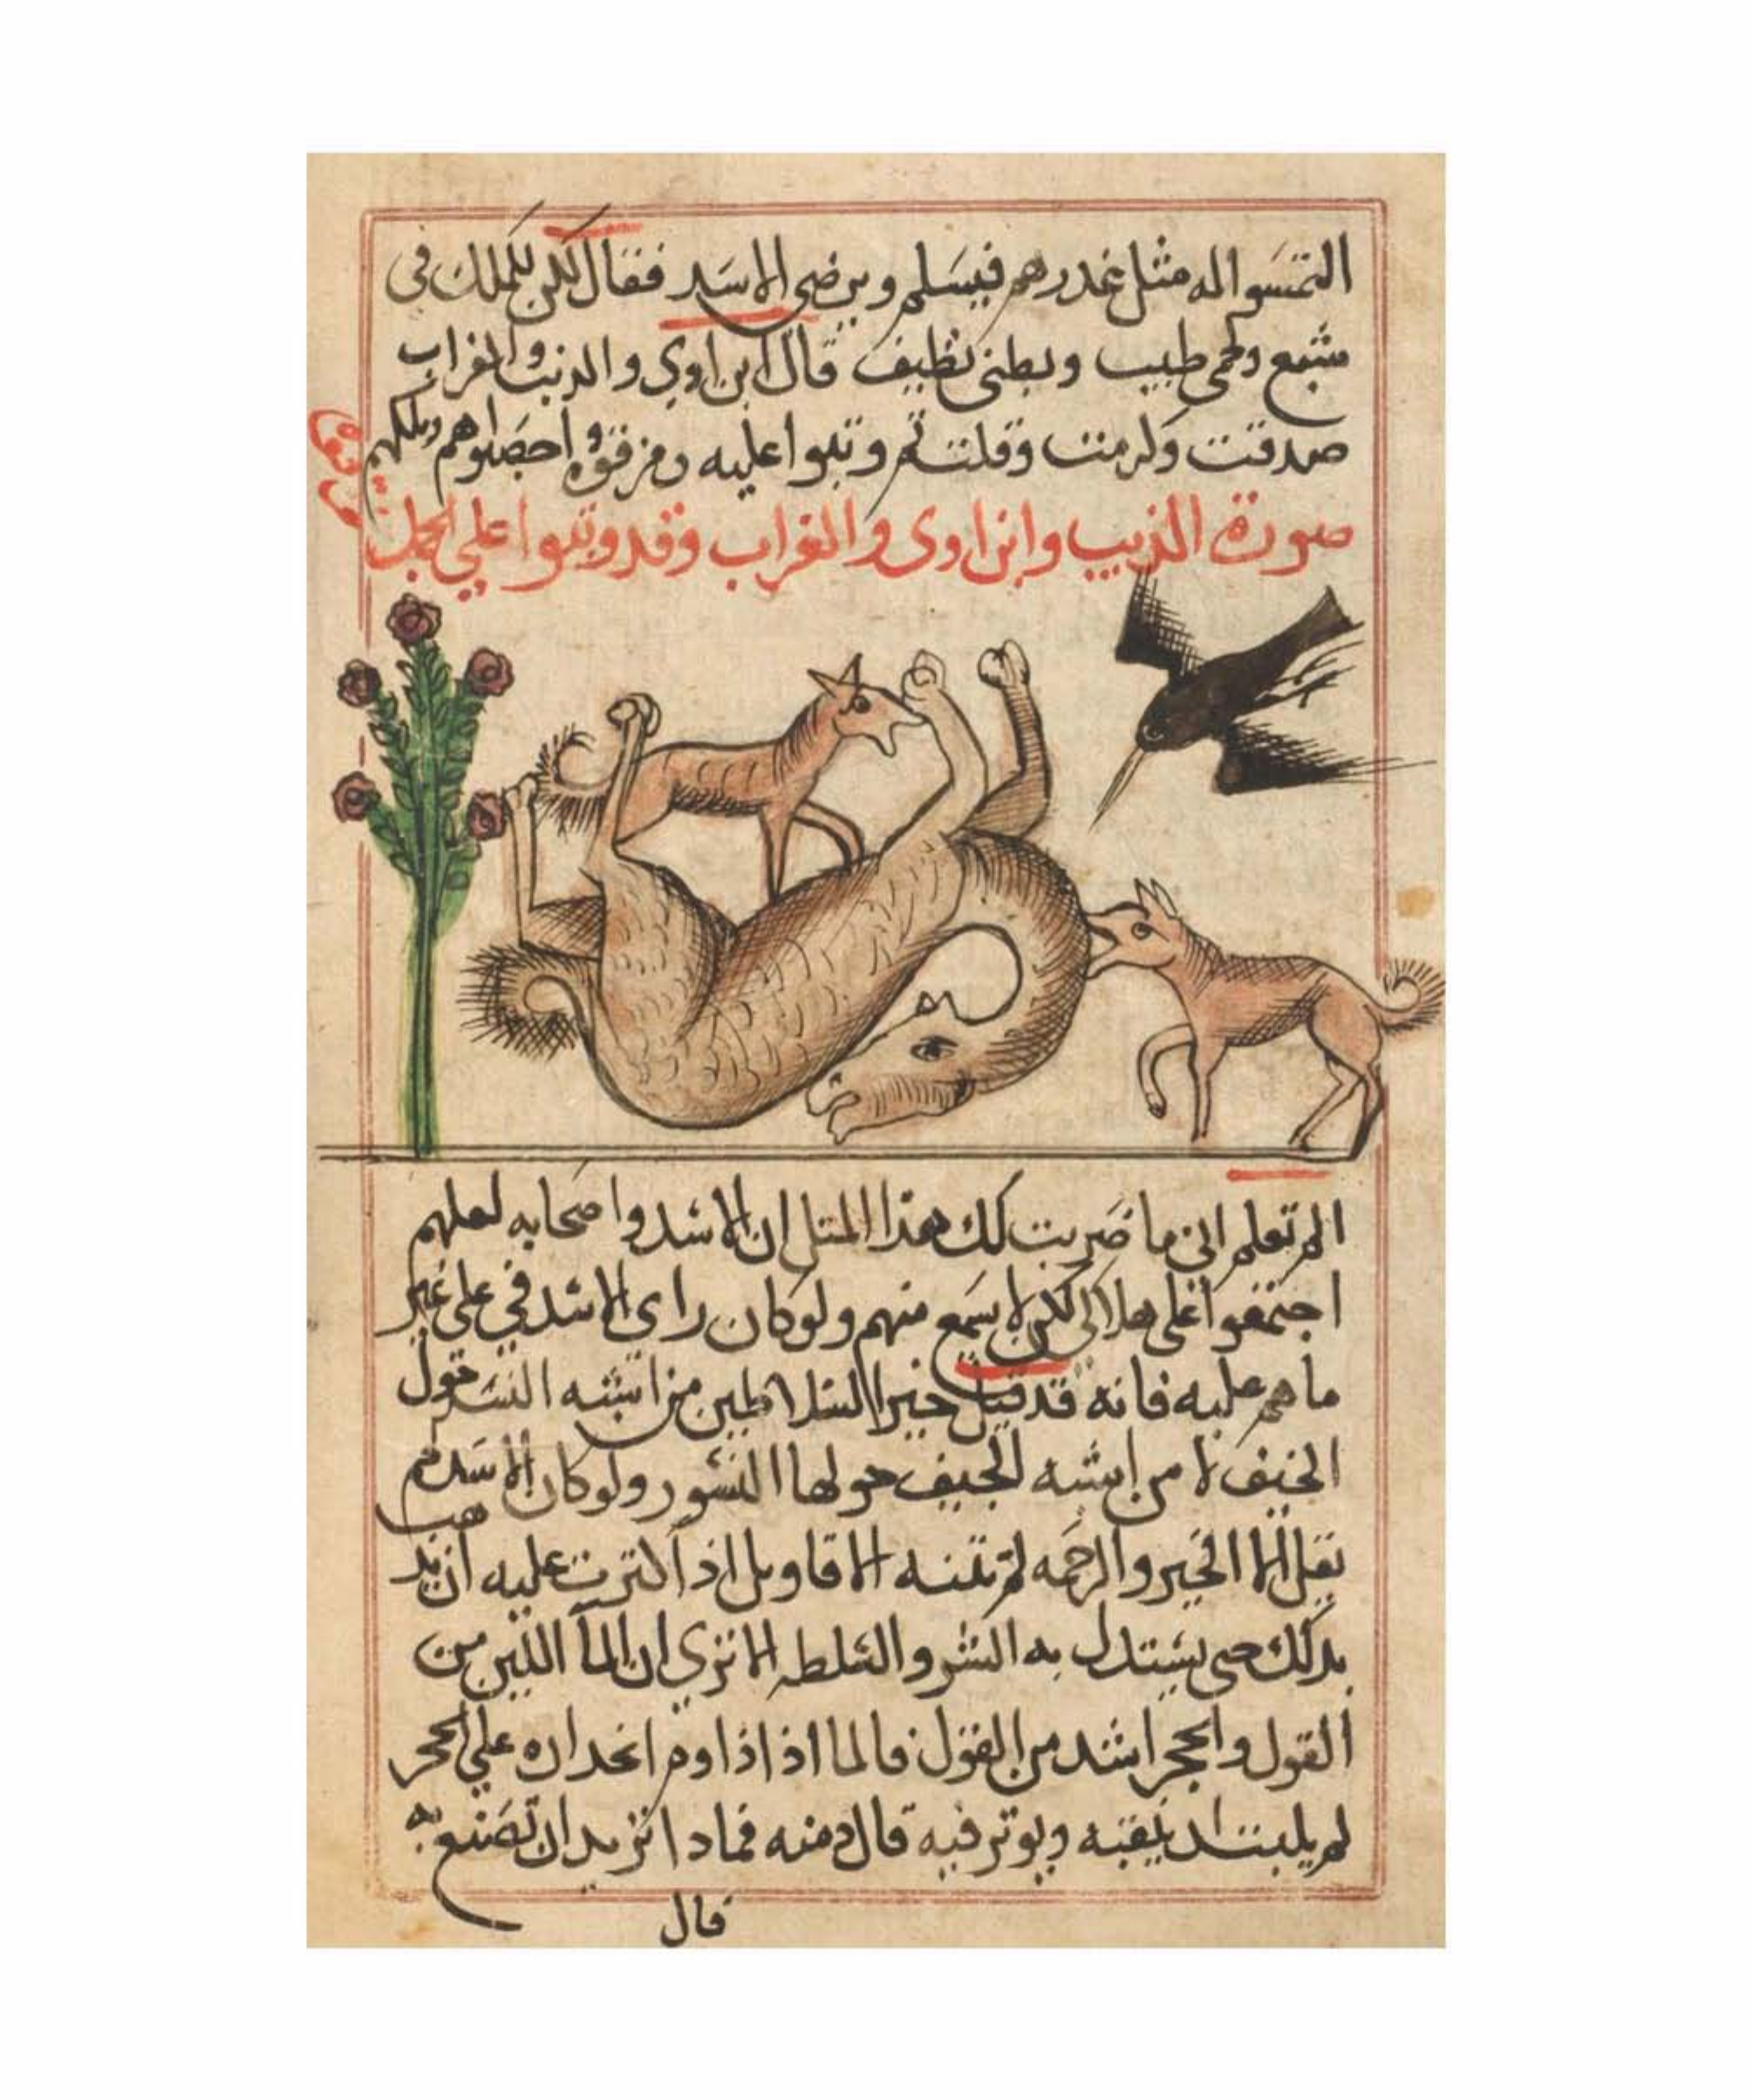 التمسوا له مثل عذرهم فيسلم ويرضي الاسد فقال لكن للملك في
شبع ولحمي طيب وبطني نظيف قال ابن اوي والذيب والغراب
صدقت وكرمت وقلت ثم وثبوا عليه ومزقوه
صورة الذيب وابن اوى والغراب وقد وثبوا علي الجمل
الم تعلم اني ما ضربت لك هذا المثل ان الاسد واصحابه لعلهم
اجتمعوا علي هلاكي لكن لا سمع منهم ولو كان راي الاسد في علي غير
ما هم عليه فانه قد قيل خير السلاطين من اشبه النسر حول
الجيف لا من اشبه الجيف حولها النسور ولو كان الاسد لم
يقل الا الخير والرحمه لم تثنه الاقاويل اذا كثرت عليه ان تذهب
بذلك حتى يستدل به الشر والغلظه الا تري ان الما الين من
القول والحجر اشد من القول فالما اذا اذا وم انحداره علي الحجر
لم يلبث ان يثقبه ويوثر فيه قال دمنه فماذا تريد ان تصنع
قال